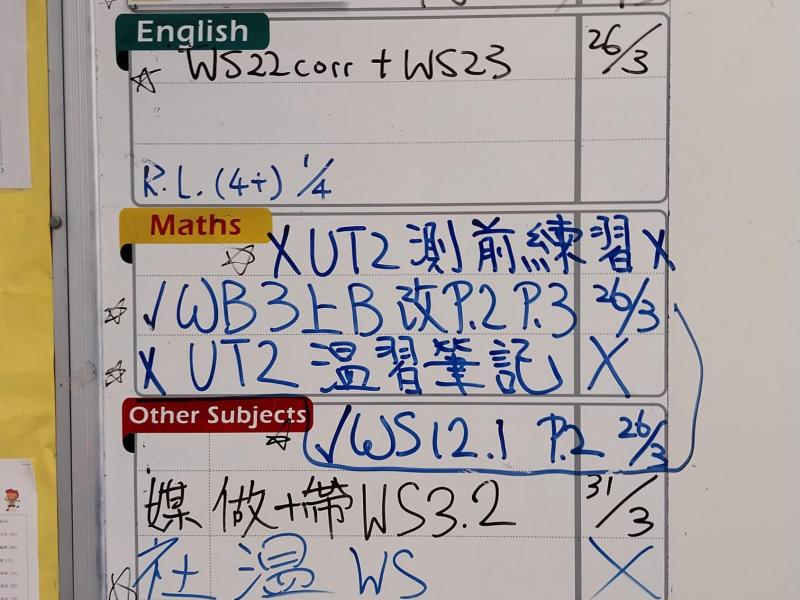 English
☆ WS22corr + WS23 26/3
R.L. (4+) 1/4
Maths
☆ X UT2 測前練習 X
☆ ✓ WB 3上B 改P.2 P.3 26/3
☆ X UT2 溫習筆記 X
Other Subjects
☆ ✓ WS12.1 P.2 26/3
媒 做+帶WS3.2 31/3
☆ 社 溫 WS X